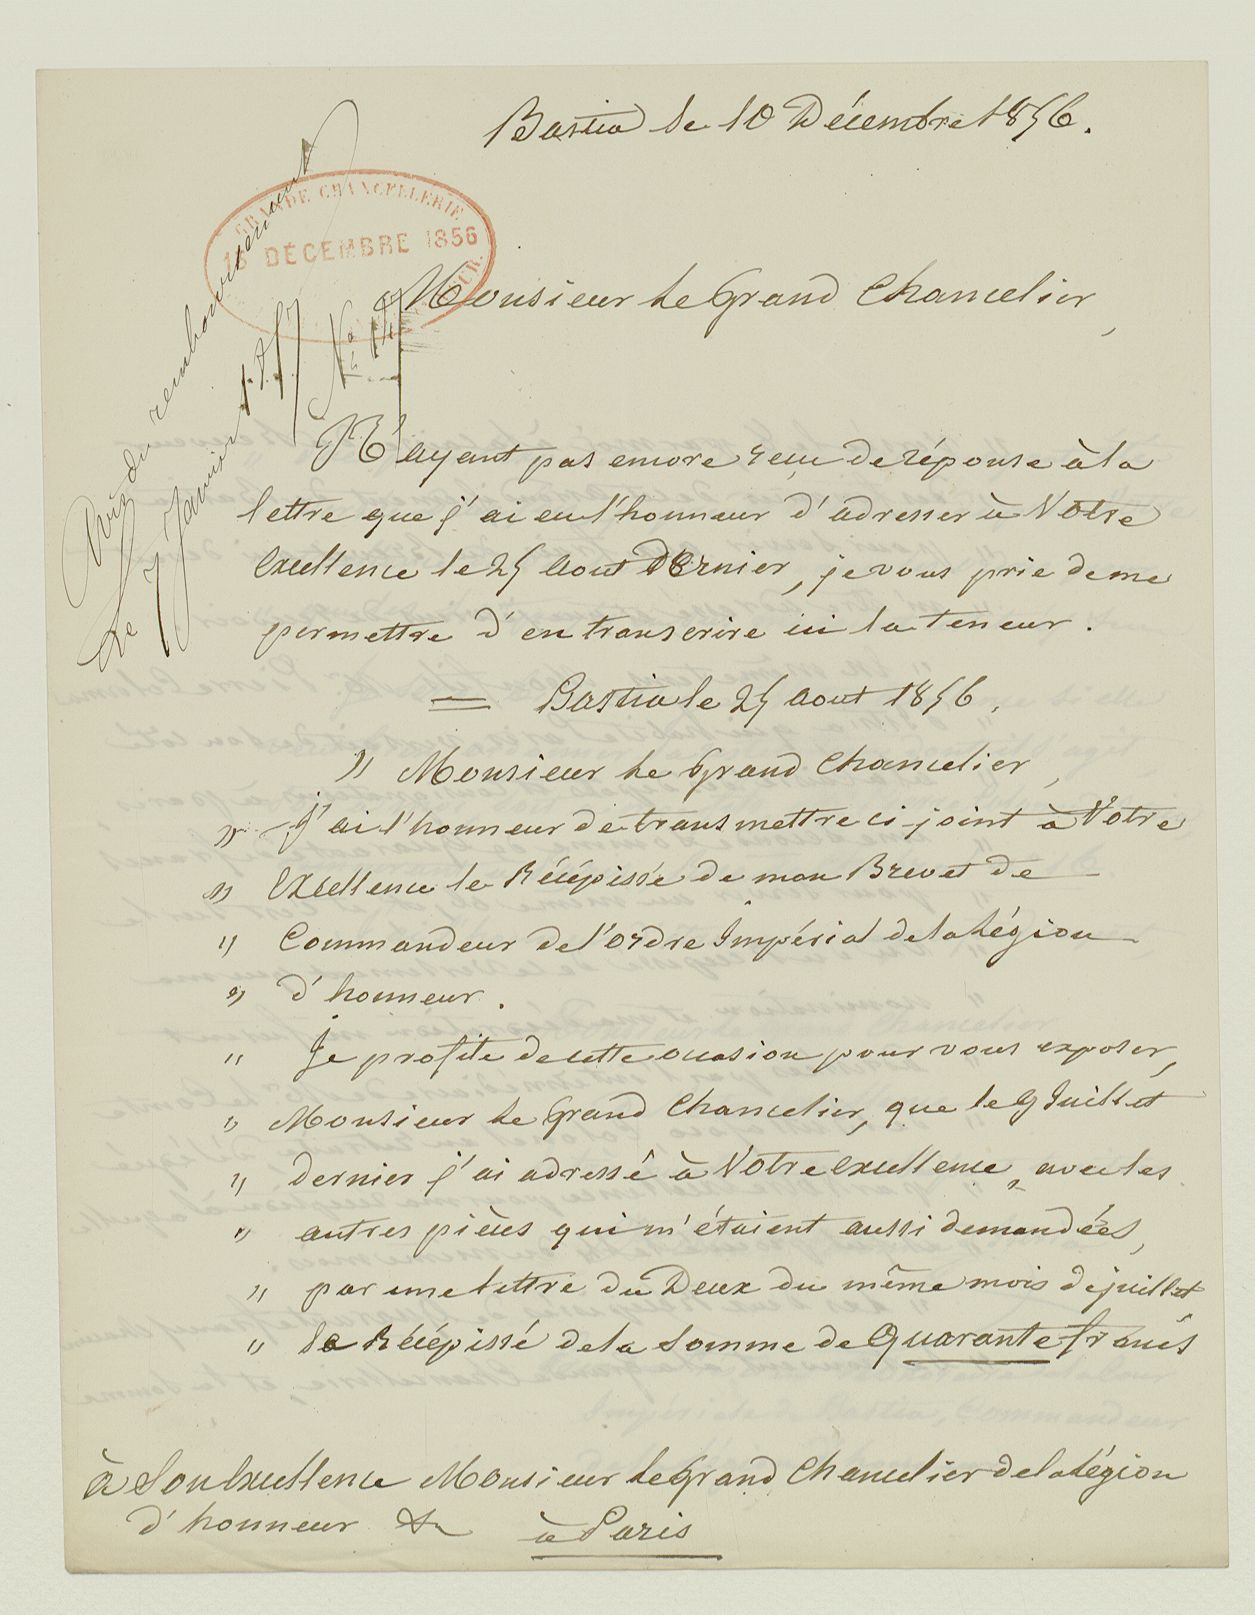 Bastia le 10 Décembre 1856.
GRANDE CHANCELLERIE
DÉCEMBRE 1856
Avis du remboursement
Le 7 Janvier 1857
No 14
Monsieur Le Grand Chancelier,
N'ayant pas encore reçu de réponse à la
lettre que j'ai eu l'honneur d'adresser à Votre
Excellence le 25 Aout Dernier, je vous prie de me
permettre d'en transcrire ici la teneur.
= Bastia le 25 Aout 1856.
" Monsieur Le Grand Chancelier,
" J'ai l'honneur de transmettre ci-joint à Votre
" Excellence le Récépissée de mon Brevet de
" Commandeur de l'ordre Impérial de la Légion
" d'honneur.
" Je profite de cette occasion pour vous exposer,
" Monsieur Le Grand Chancelier, que le 9 Juillet
" dernier j'ai adressé à Votre Excellence, avec les
" autres pièces qui m'étaient aussi demandées,
" par une lettre du Deux du même mois de juillet,
" Le Récépissé de la Somme de Quarante francs
à Son Excellence Monsieur le Grand Chancelier de la Légion
d'honneur &a à Paris